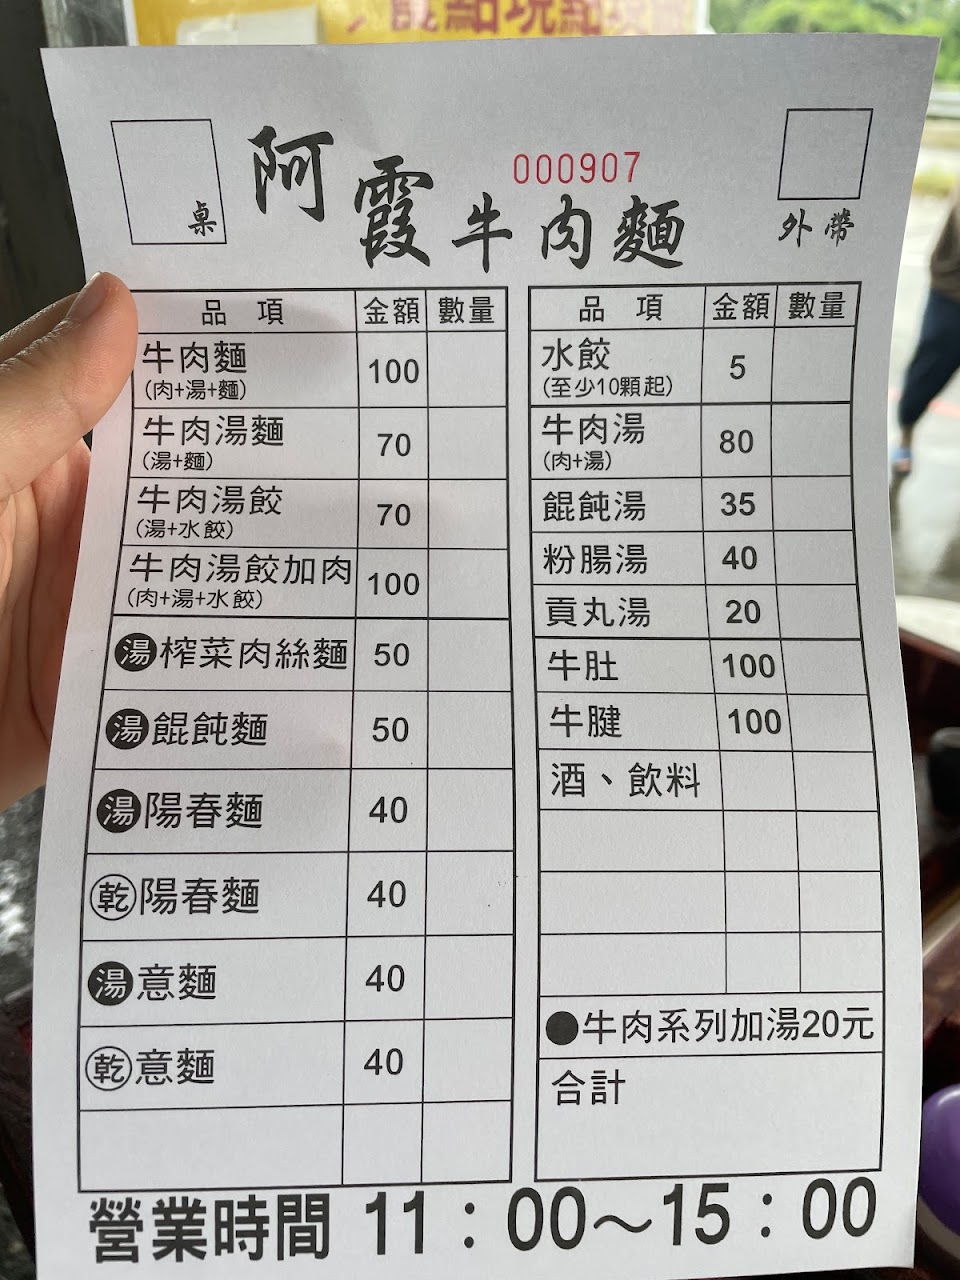 桌
阿霞牛肉麵
000907
外帶
品項 金額 數量
牛肉麵 100
(肉+湯+麵)
牛肉湯麵 70
(湯+麵)
牛肉湯餃 70
(湯+水餃)
牛肉湯餃加肉 100
(肉+湯+水餃)
湯榨菜肉絲麵 50
湯餛飩麵 50
湯陽春麵 40
乾陽春麵 40
湯意麵 40
乾意麵 40
品項 金額 數量
水餃 5
(至少10顆起)
牛肉湯 80
(肉+湯)
餛飩湯 35
粉腸湯 40
貢丸湯 20
牛肚 100
牛腱 100
酒、飲料
●牛肉系列加湯20元
合計
營業時間 11:00~15:00